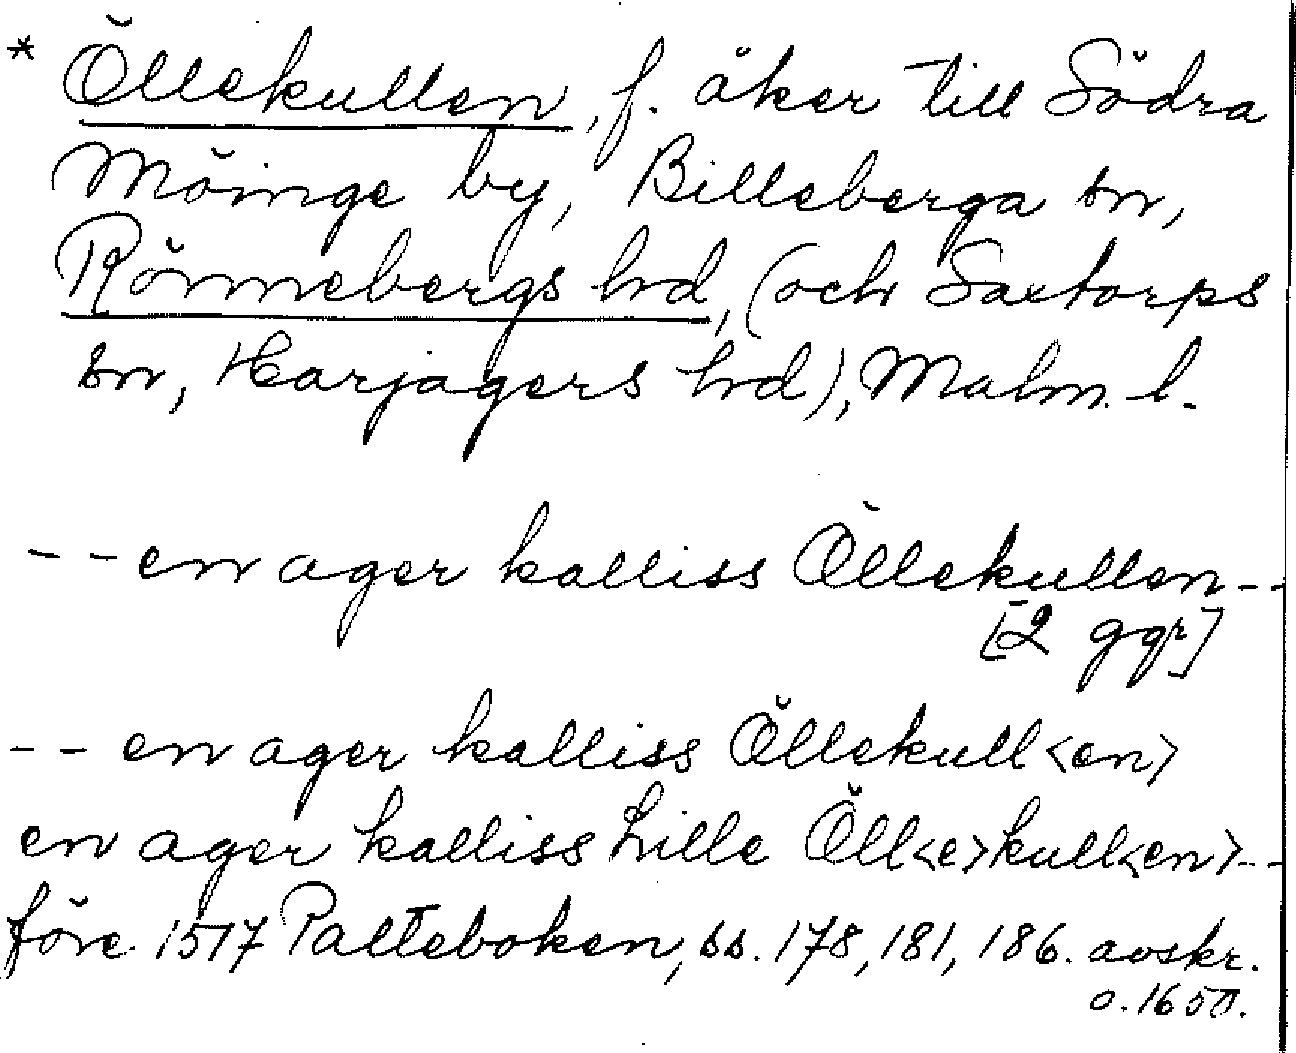 * Öllekullen, f. åker till Södra
Möinge by, Billeberga sn,
Rönnebergs hd, (och Saxtorps
sn, Harjagers hd), Malm. l.
-- en ager kalliss Öllekullen --
[2 ggr]
-- en ager kalliss Öllekull<en>
en ager kalliss Lille Öll<e>kull<en> --
före 1517 Palteboken, ss. 178, 181, 186. avskr.
o. 1650.